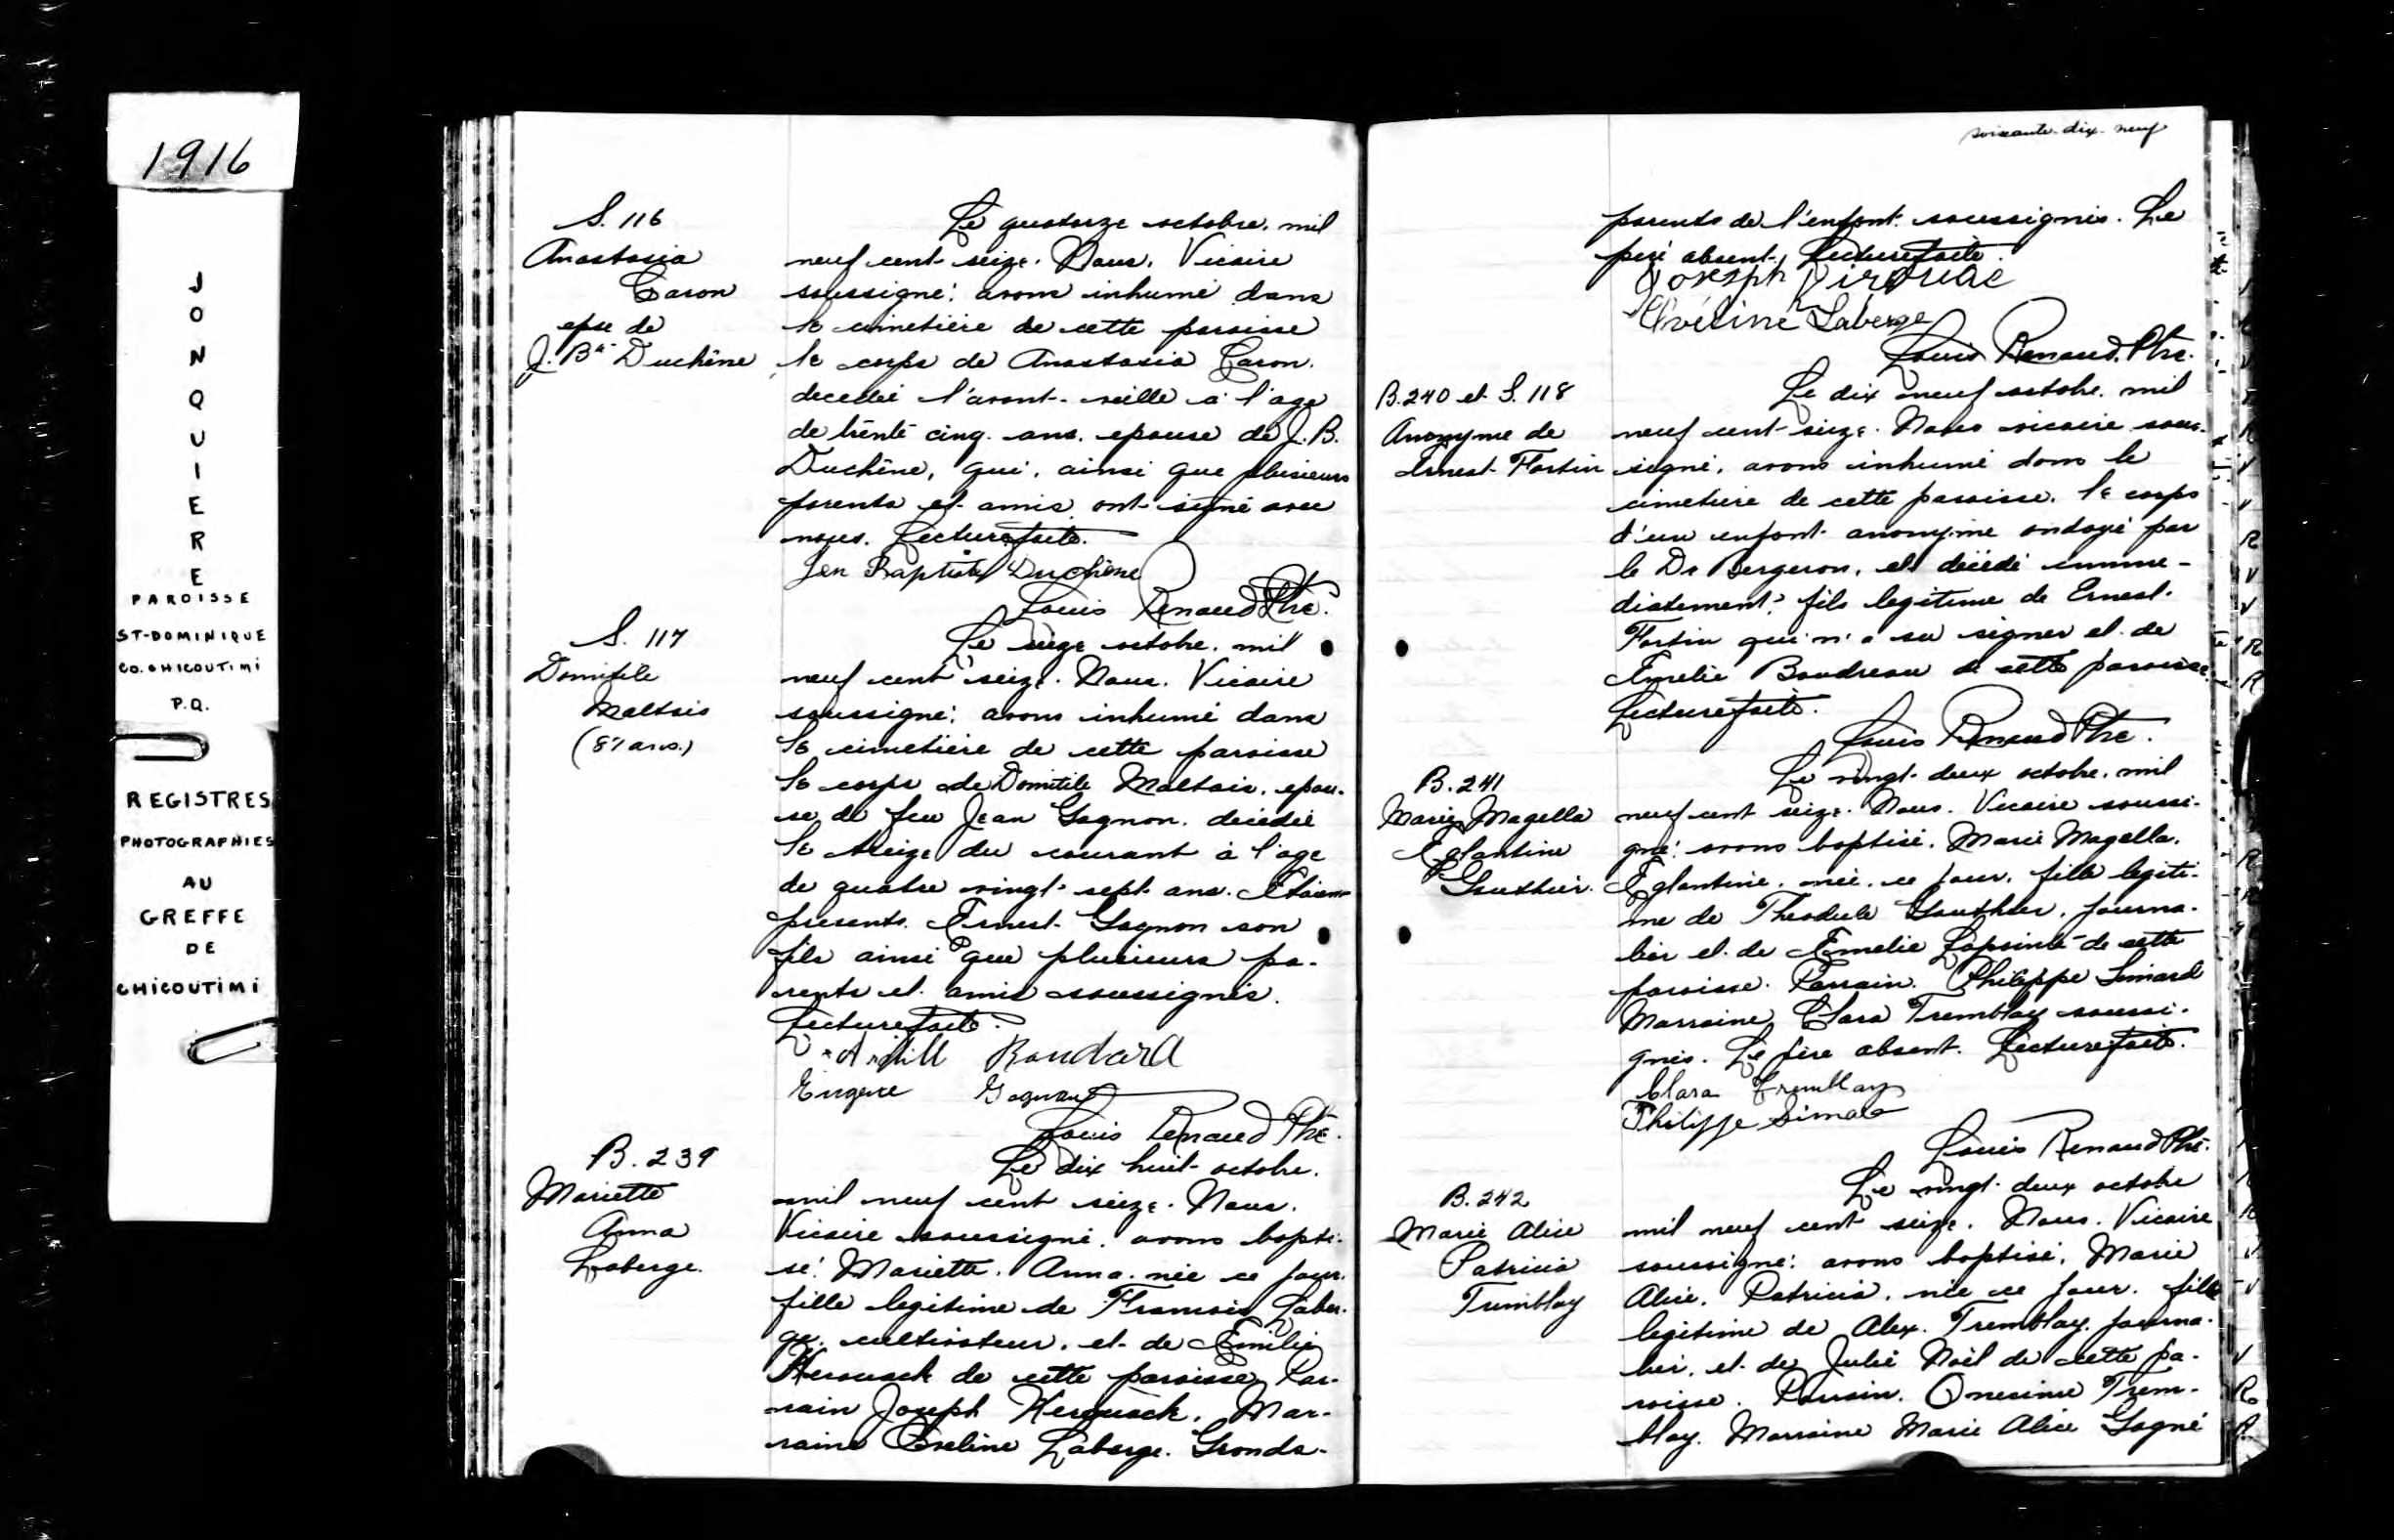 1916
JONQUIERE
PAROISSE
ST-DOMINIQUE
CO. CHICOUTIMI
P.Q.
REGISTRES
PHOTOGRAPHIES
AU
GREFFE
DE
CHICOUTIMI
S. 116
Anastasia
Caron
epse de
J. Bte Duchêne
Le quatorze octobre, mil
neuf cent seize. Nous, Vicaire
soussigné, avons inhumé dans
le cimetière de cette paroisse
le corps de Anastasia Caron.
decedée l'avant-veille à l'age
de trente cinq ans, epouse de J. B.
Duchêne, qui, ainsi que plusieurs
parents et amis ont signé avec
nous. Lecture faite.
Jen Baptiste Duchene
Louis Renaud Ptre.
S. 117
Domitile
Maltais
(87 ans.)
Le seize octobre, mil
neuf cent seize. Nous, Vicaire
soussigné, avons inhumé dans
le cimetière de cette paroisse
le corps de Domitile Maltais, epou-
se de feu Jean Gagnon, décédée
le treize du courant à l'age
de quatre vingt-sept ans. Etaient
presents Ernest Gagnon son
fils ainsi que plusieurs pa-
rents et amis soussignés.
Lecture faite.
Eugene Gagnon
Louis Renaud Ptre.
B. 239
Mariette
Anna
Laberge.
Le dix huit octobre,
mil neuf cent seize. Nous,
Vicaire soussigné, avons bapti-
sé Mariette, Anna, née ce jour,
fille legitime de Francois Laber-
ge, cultivateur, et de Emilie
Kerouack de cette paroisse. Par-
rain Joseph Kerouack. Mar-
raine Eveline Laberge. Grands-
soixante-dix-neuf
parents de l'enfant soussignés. Le
père absent. Lecture faite.
Joseph Kirouac
Evéline Laberge
Louis Renaud, Ptre.
B. 240 et S. 118
Anonyme de
Ernest Fortin
Le dix neuf octobre, mil
neuf cent seize. Nous vicaire sous-
signé, avons inhumé dans le
cimetière de cette paroisse, le corps
d'un enfant anonyme ondoyé par
le Dr Bergeron, et décédé imme-
diatement, fils legitime de Ernest
Fortin qui n'a su signer et de
Emelie Boudreau de cette paroisse.
Lecture faite.
Louis Renaud Ptre.
B. 241
Marie Magella
Eglantine
Gauthier.
Le vingt-deux octobre, mil
neuf cent seize. Nous, Vicaire soussi-
gné, avons baptisé, Marie Magella,
Eglantine, née ce jour, fille legiti-
me de Theodule Gauthier, journa-
lier et de Emelie Lapointe de cette
paroisse. Parrain. Philippe Simard
Marraine, Clara Tremblay soussi-
gnés. Le père absent. Lecture faite.
Clara Tremblay
Philippe Simard
Louis Renaud Ptre.
B. 242
Marie Alice
Patricia
Tremblay
Le vingt-deux octobre
mil neuf cent seize. Nous, Vicaire
soussigné, avons baptisé, Marie
Alice, Patricia, née ce jour, fille
legitime de Alex. Tremblay, journa-
lier, et de Julie Noël de cette pa-
roisse. Parrain. Onesime Trem-
blay. Marraine Marie Alice Gagné